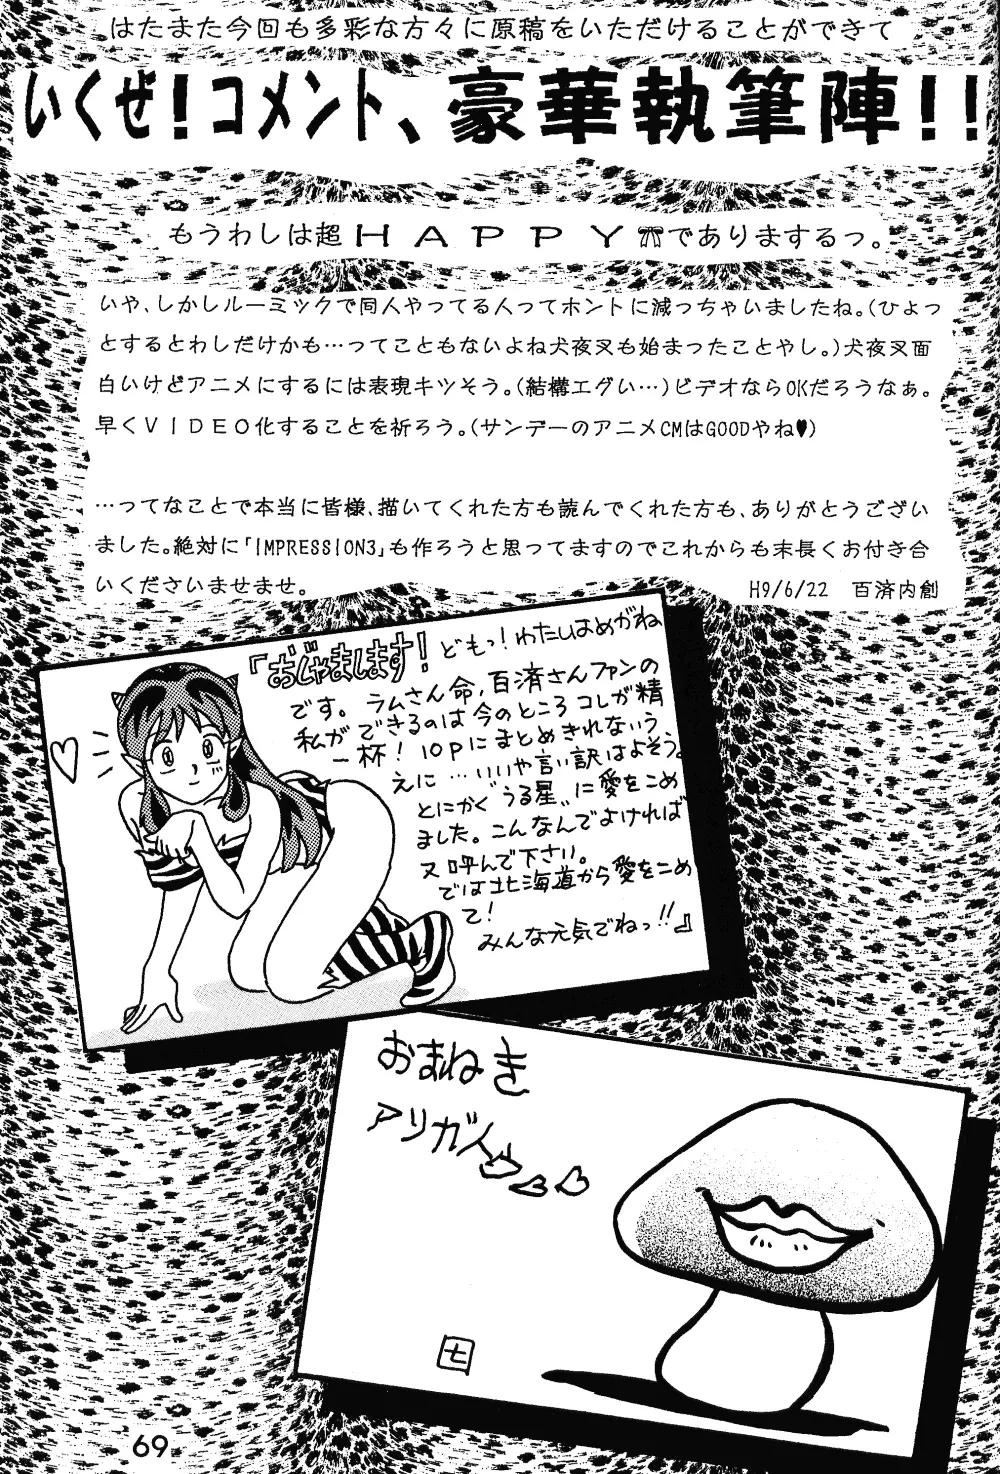 はたまた今回も多彩な方々に原稿をいただけることができて
いくぜ！コメント、豪華執筆陣！！
もうわしは超ＨＡＰＰＹでありまするっ。
いや、しかしルーミックで同人やってる人ってホントに減っちゃいましたね。（ひょっ
とするとわしだけかも…ってこともないよね犬夜叉も始まったことやし。）犬夜叉面
白いけどアニメにするには表現キツそう。（結構エグい…）ビデオならOKだろうなぁ。
早くＶＩＤＥＯ化することを祈ろう。（サンデーのアニメCMはGOODやね♥）
…ってなことで本当に皆様、描いてくれた方も読んでくれた方も、ありがとうござい
ました。絶対に「IMPRESSION3」も作ろうと思ってますのでこれからも末長くお付き合
いくださいませませ。
H9/6/22　百済内創
「おじゃまします！どもっ！わたしはめがね
です。ラムさん命、百済さんファンの
私ができるのは今のところコレが精
一杯！10Pにまとめきれないう
えに…いいや言い訳はよそう。
とにかく“うる星”に愛をこめ
ました。こんなんでよければ
又呼んで下さい。
では北海道から愛をこめ
て！
みんな元気でねっ!!』
おまねき
アリガト♡♡♡
七
69